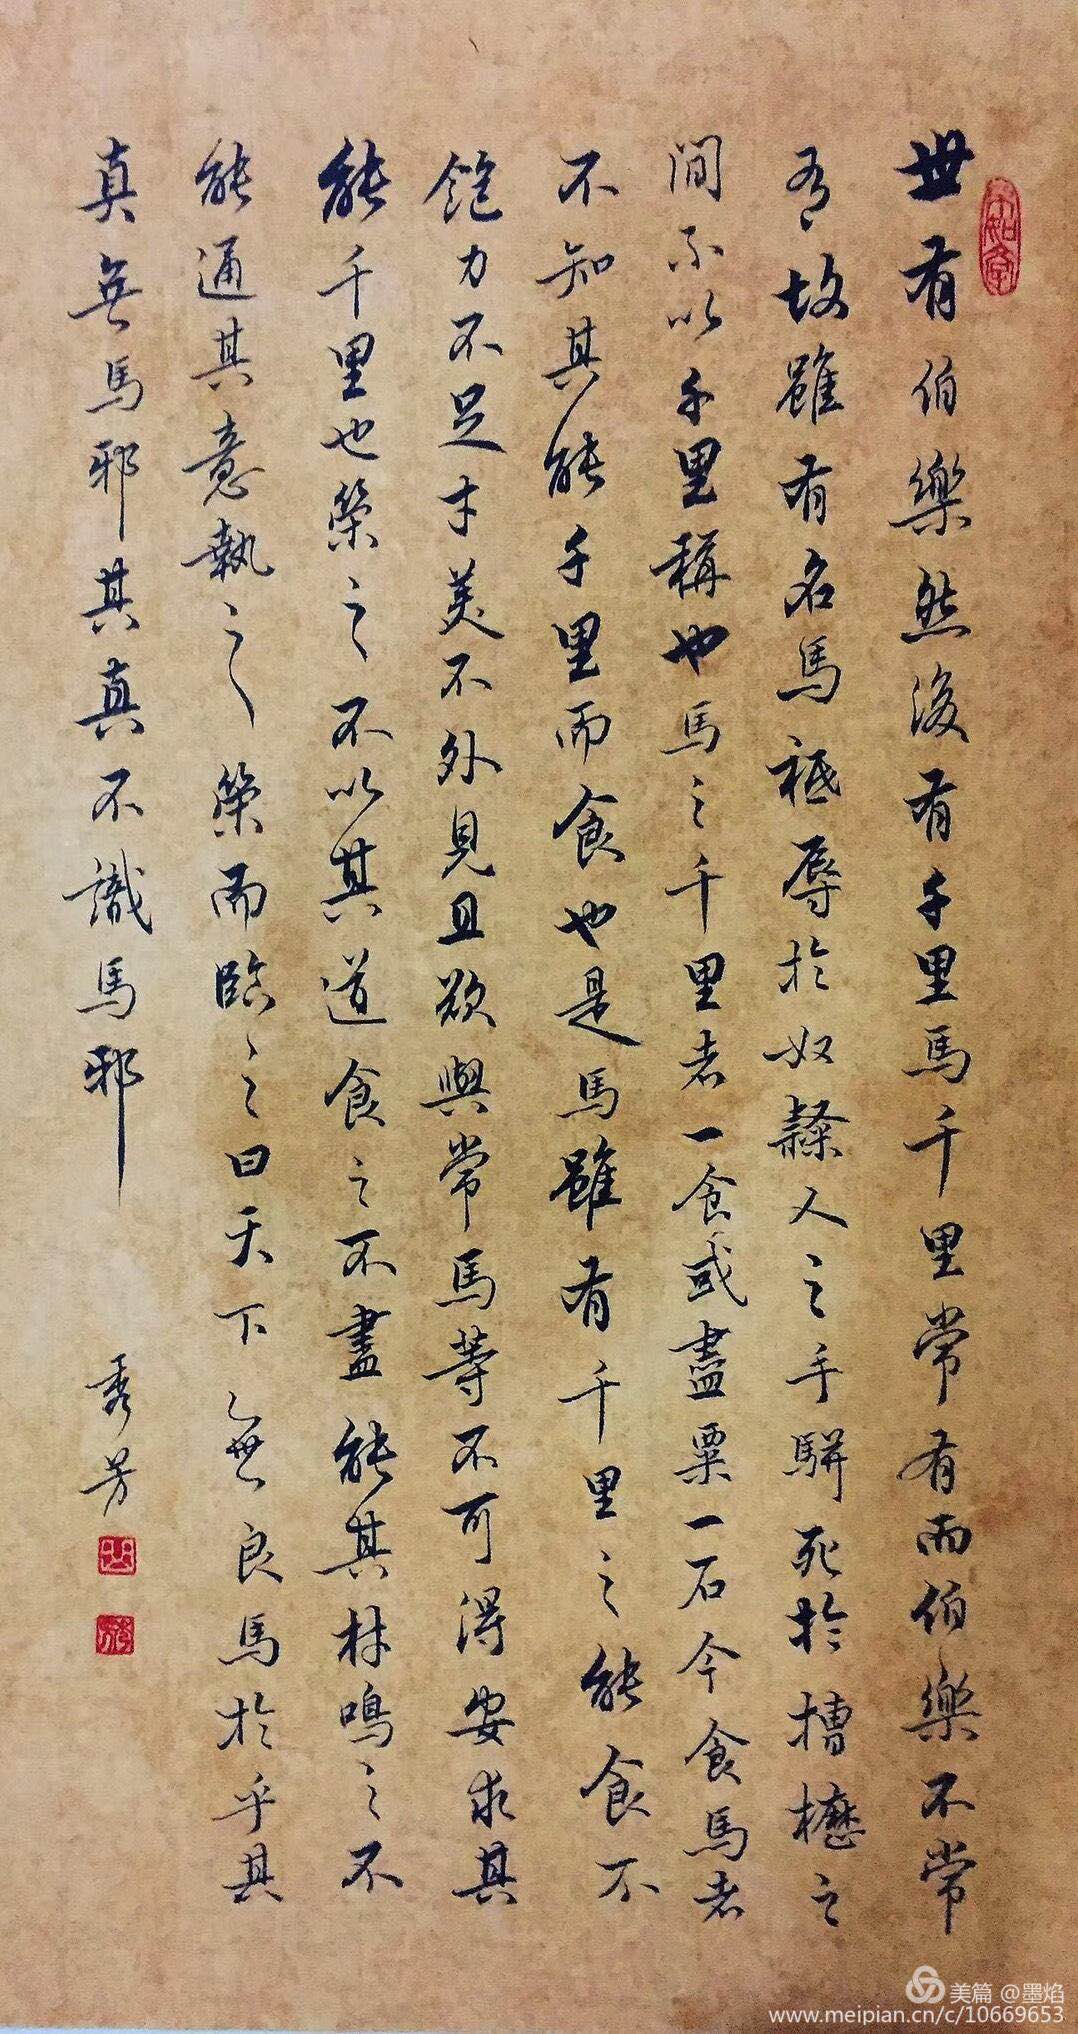 世有伯樂然後有千里馬千里常有而伯樂不常
有故雖有名馬祗辱於奴隸人之手駢死於槽櫪之
間不以千里稱也馬之千里者一食或盡粟一石今食馬者
不知其能千里而食也是馬雖有千里之能食不
飽力不足才美不外見且欲與常馬等不可得安求其
能千里也策之不以其道食之不盡能其材鳴之不
能通其意執之策而臨之曰天下無良馬於乎其
真無馬邪其真不識馬邪
秀芳
美篇 @墨焰
www.meipian.cn/c/10669653